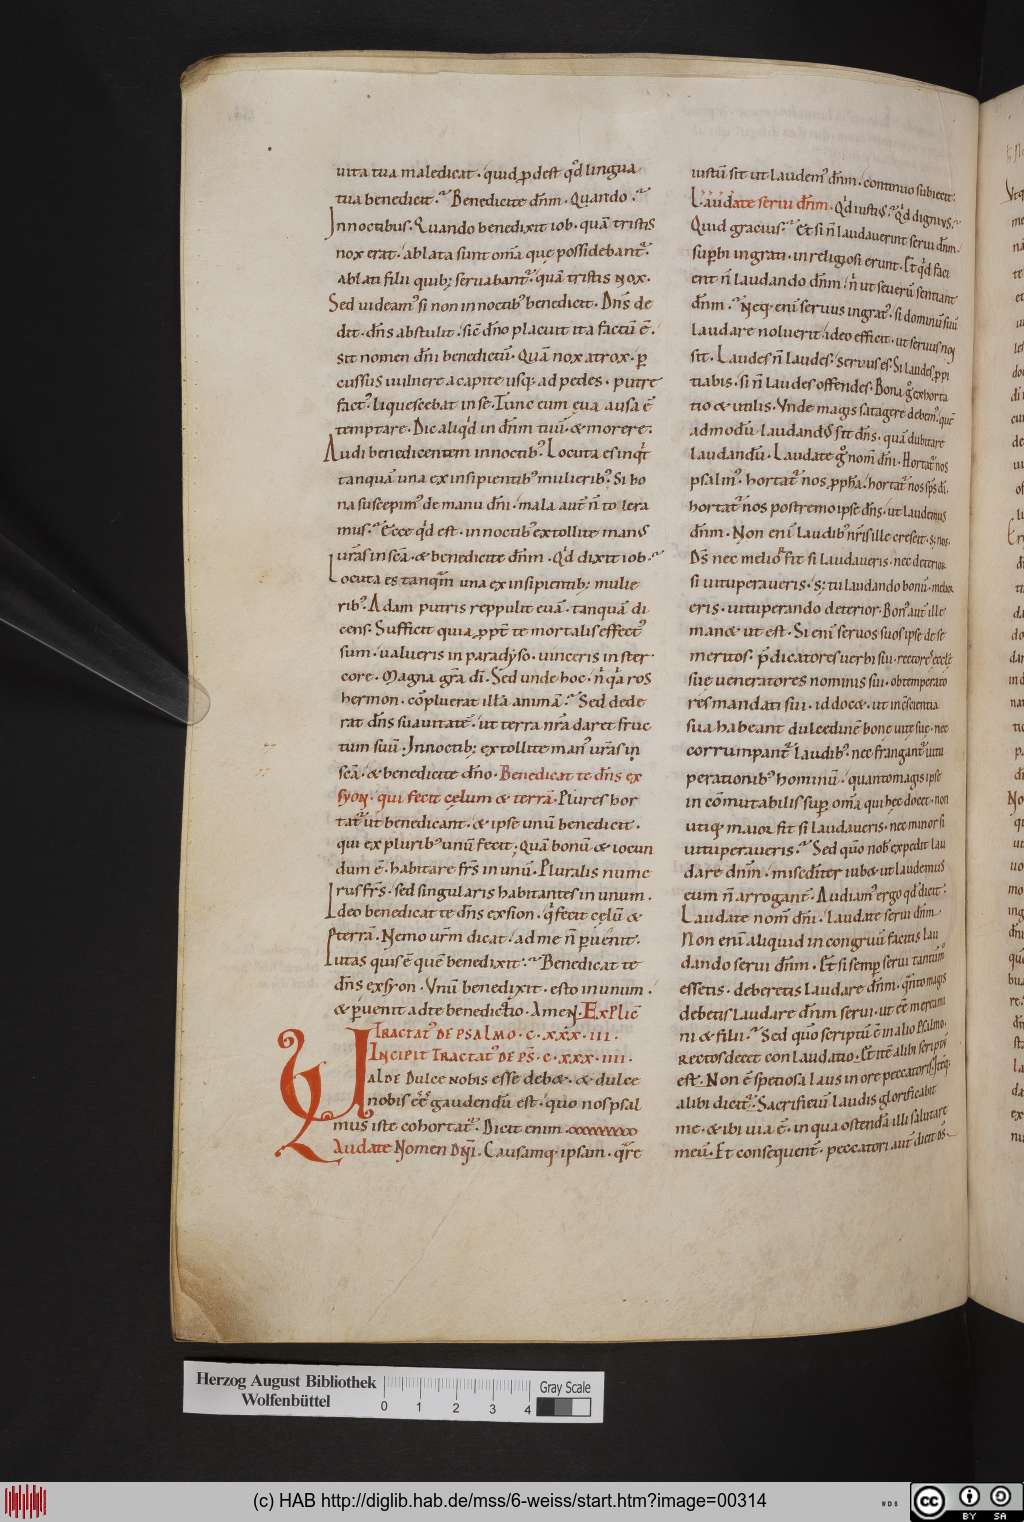 uita tua maledicat. quid ꝓdest qd̛ lingua
tua benedicit. Benedicite dñm. Quando
Innoctibus. Quando benedixit iob. quā tristis
nox erat. ablata sunt om̄a que possidebant͛.
ablati filii quib; seruabant͛. quā tristis nox.
Sed uideamꝰ si non in noctibꝰ benedicit. Dn̄s de
dit. dn̄s abstulit. sic̄ dn̄o placuit ita factū ē.
sit nomen dn̄i benedictū. Quā nox atrox. ꝑ
cussus uulnere a capite usq; ad pedes. putre
factꝰ. liquescebat in se. Tunc cum eua ausa ē
temptare. Dic aliqd̛ in dn̄m tuū. & morere.
Audi benedicentem in noctibꝰ. Locuta es inqt̛
tanquā una ex insipientibꝰ mulieribꝰ. Si bo
na suscepimꝰ de manu dn̄i. mala aut̄ n̄ tolera
mus. Ecce qd̛ est. in noctibꝰ extollite manꝰ
ur̄as in sc̄a. & benedicite dn̄m. Qd̛ dixit iob.
Locuta es tanqm̄ una ex insipientib; mulie
ribꝰ. Adam putris reppulit euā. tanquā di
cens. Sufficit quia ꝓpt̄ te mortalis effectꝰ
sum. ualueris in paradyso. uinceris in ster
core. Magna gr̄a dī. Sed unde hoc. n̄ qa̛ ros
hermon. cōpluerat illā animā. Sed dede
rat dn̄s suauitatē. ut terra nr̄a daret fruc
tum suū. Innoctib; extollite manꝰ ur̄as in
sc̄a. & benedicite dn̄o. Benedicat te dn̄s ex
syon. qui fecit celum & terrā. Plures hor
tat͛ ut benedicant. & ipse unū benedicit.
qui ex pluribꝰ unū fecit. Quā bonū & iocun
dum ē. habitare fr̄s in unū. Pluralis nume
rus fr̄s. sed singularis habitantes in unum.
Ideo benedicat te dn̄s ex sion. q̛ fecit celū &
terrā. Nemo ur̄m dicat. ad me n̄ ꝑuenit.
Putas quis ē quē benedixit. Benedicat te
dn̄s ex syon. Vnū benedixit. esto in unum.
& ꝑuenit ad te benedictio. Amen. Explic̄
Tractatꝰ de psalmo. c. xxx. iii.
Incipit tractatꝰ de ps̄. c. xxx. iiii.
Valde dulce nobis esse deb&. & dulce
nobis eē gaudendū est. quo nos psal
mus iste cohortat͛. Dicit enim
Laudate nomen dn̄i. Causamq; ipsam. qr̄e
iustū sit ut laudemꝰ dn̄m. continuo subiecit.
Laudate serui dn̄m. Qd̛ iustiꝰ. Qd̛ dignius.
Quid gracius. Et si n̄ laudauerint serui dn̄m.
suꝑbi ingrati. inreligiosi erunt. Et qd̛ faci
ent n̄ laudando dn̄m. n̄ ut seuerū sentiant
dn̄m. Neq; eni seruus ingratꝰ. si dominū suū
laudare noluerit. ideo efficit. ut seruus non
sit. Laudes n̄ laudes. seruus es. Si laudes ꝓpi
tiabis. si n̄ laudes offendes. Bona g̊ exhorta
tio & utilis. Vnde magis satagere debemꝰ. que
admodū laudandꝰ sit dn̄s. quā dubitare
laudandū. Laudate g̊ nom̄ dn̄i. Hortat͛ nos
psalmꝰ. hortat͛ nos ꝓph̄a. hortat͛ nos sp̄s dī.
hortat͛ nos postremo ipse dn̄s. ut laudemus
dn̄m. Non enī laudibꝰ nr̄is ille crescit. s; nos.
Ds̄ nec melior fit si laudaueris. nec deterior
si uituperaueris. s; tu laudando bonū. melior
eris. uituperando deterior. Bonꝰ aut̄ ille
man& ut est. Si enī seruos suos ipse de se
meritos. p̄dicatores uerbi sui. rectores eccle
sue ueneratores nominis sui. obtemperato
res mandati sui. id doc&. ut in c̄scientia
sua habeant dulcedinē bone uite sue. nec
corrumpant͛ laudibꝰ. nec frangant͛ uitu
perationibꝰ hominū. quanto magis ipse
in cōmutabilis suꝑ om̄a qui hec docet. non
utiq; maior fit si laudaueris. nec minor si
uituperaueris. Sed quō nob̄ expedit lau
dare dn̄m. misericorditer iub& ut laudemus
eum n̄ arrogant̄. Audiamꝰ ergo qd̛ dicit.
Laudate nom̄ dn̄i. laudate serui dn̄m.
Non enī aliquid incongruū facitis lau
dando serui dn̄m. Et si semꝑ serui tantum
essetis. deberetis laudare dn̄m. qn̄to magis
debetis laudare dn̄m serui. ut eē mereami
ni & filii. Sed quō scriptū ē in alio psalmo.
Rectos decet conlaudatio. Et itē alibi scriptū
est. Non ē speciosa laus in ore peccatoris. Iteq;
alibi dicit͛. Sacrificiū laudis glorificabit
me. & ibi uia ē. in qua ostendā illi salutare
meū. Et consequent̄. peccatori aut̄ dicit ds̄
Herzog August Bibliothek
Wolfenbüttel
0 1 2 3 4
Gray Scale
(c) HAB http://diglib.hab.de/mss/6-weiss/start.htm?image=00314
cc BY SA